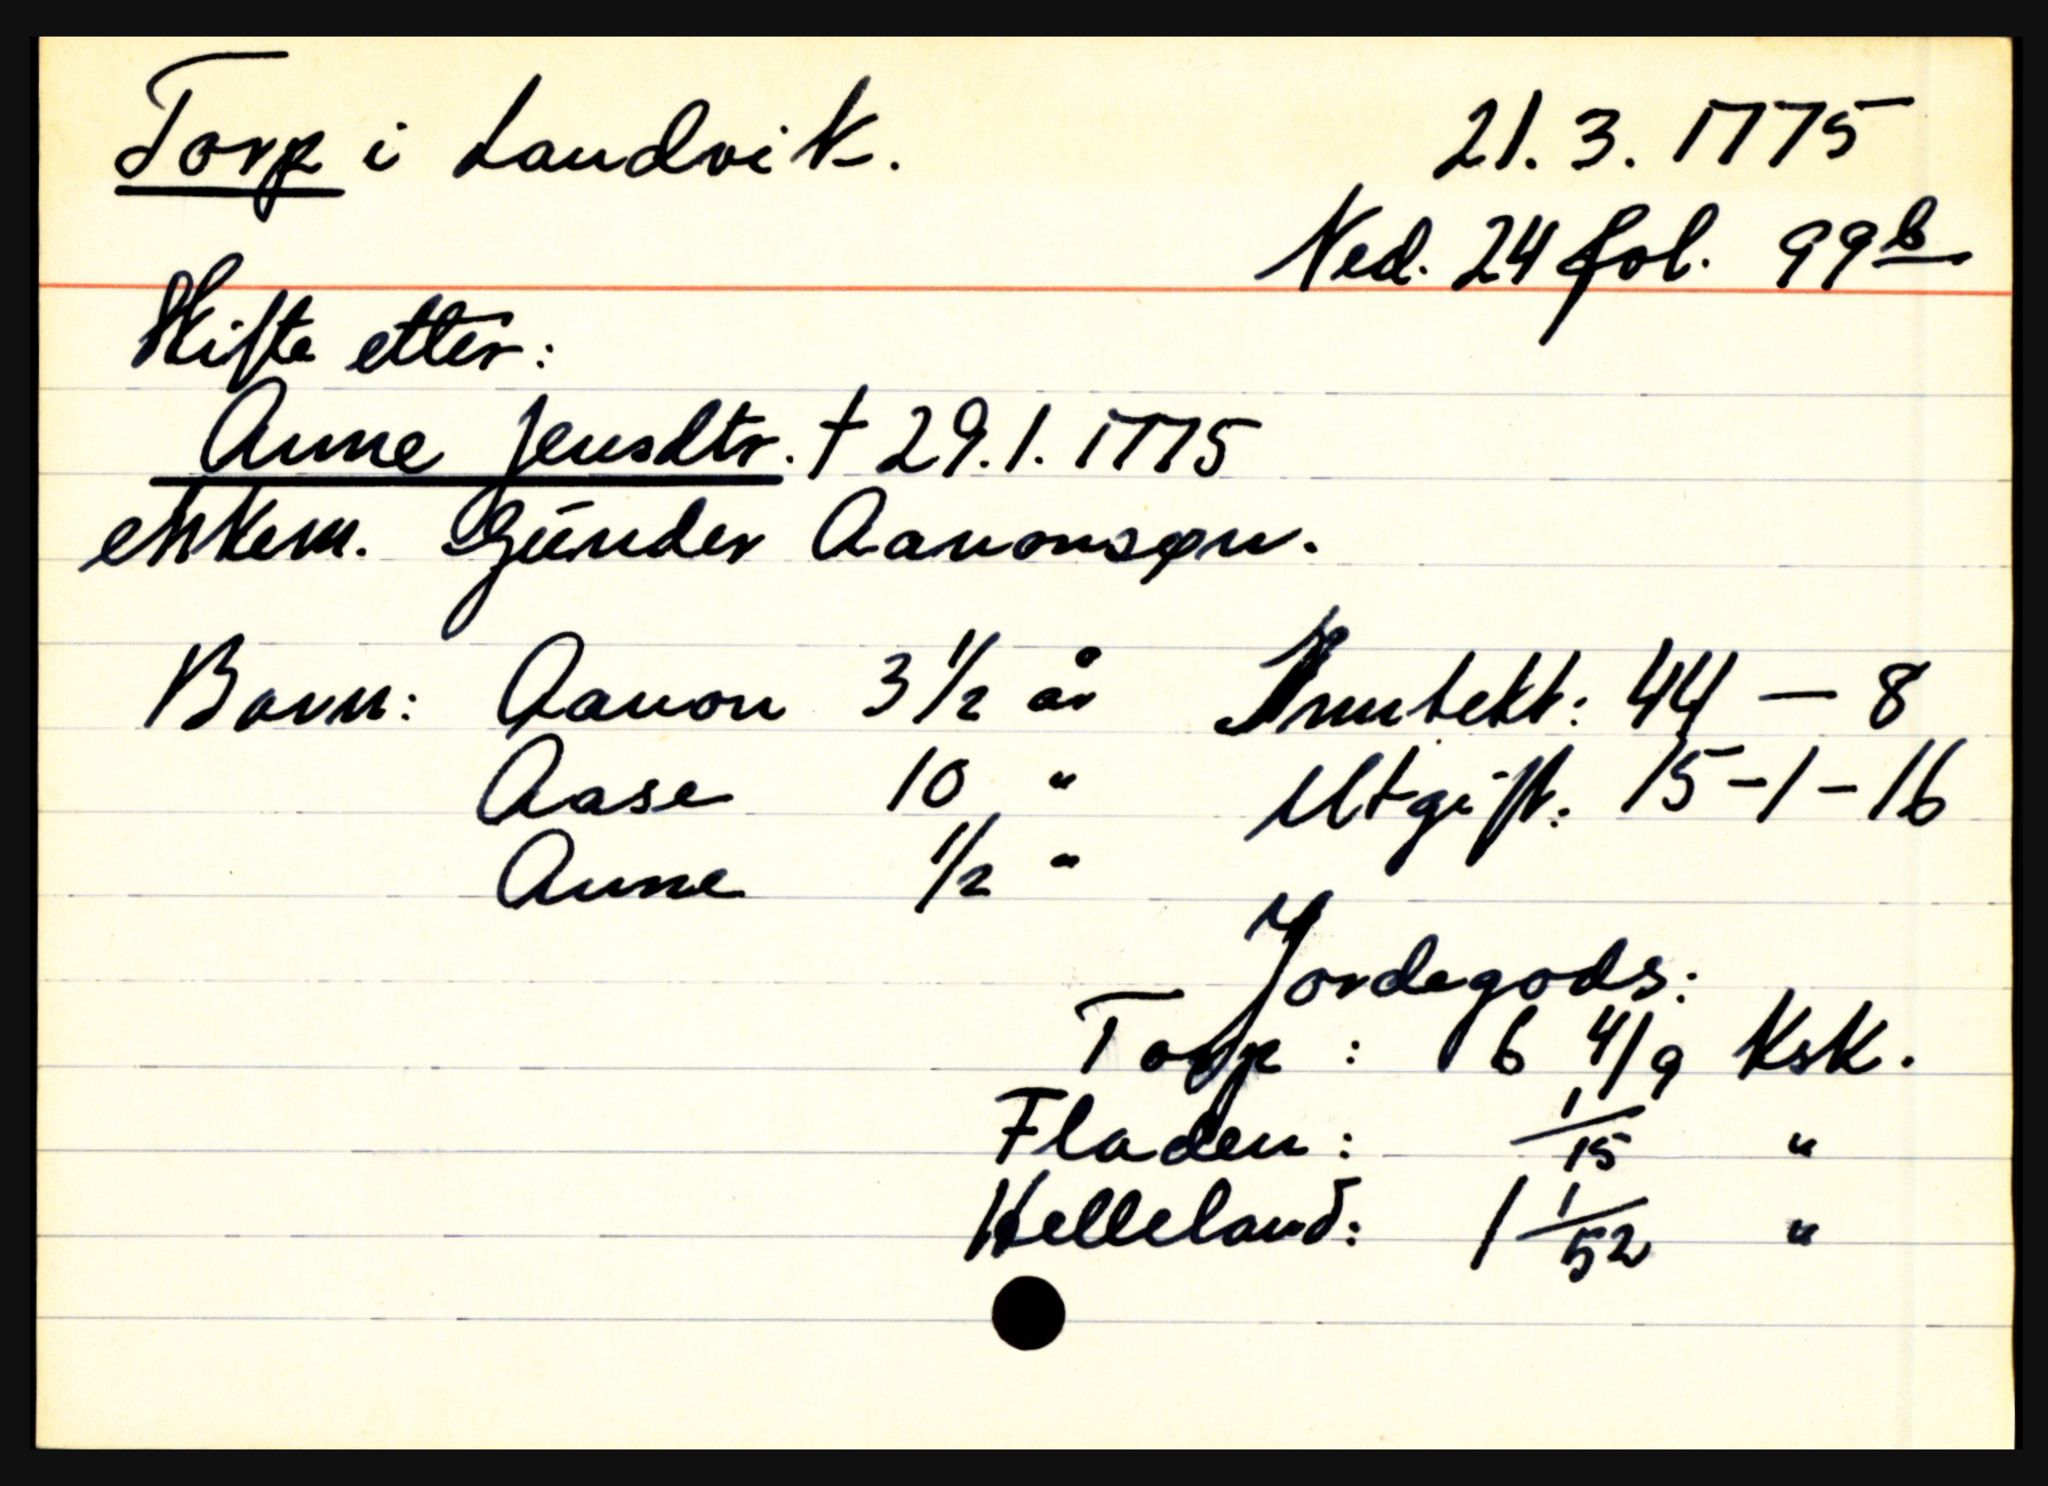 Torp i Landvik. 21. 3. 1775
Ned. 24 fol. 99b
Skifte etter:
Anne Jensdtr. † 29.1.1775
enkem. Günder Aanonsøn.
Born: Aanon 3 1/2 år Inntekt: 44 — 8
Aase 10 " Utgift: 15-1-16
Anne 1/2 "
Jordegods:
Torp : 6 4/9 Ksk.
Fladen : 1/15 "
Helleland: 1 1/52 "